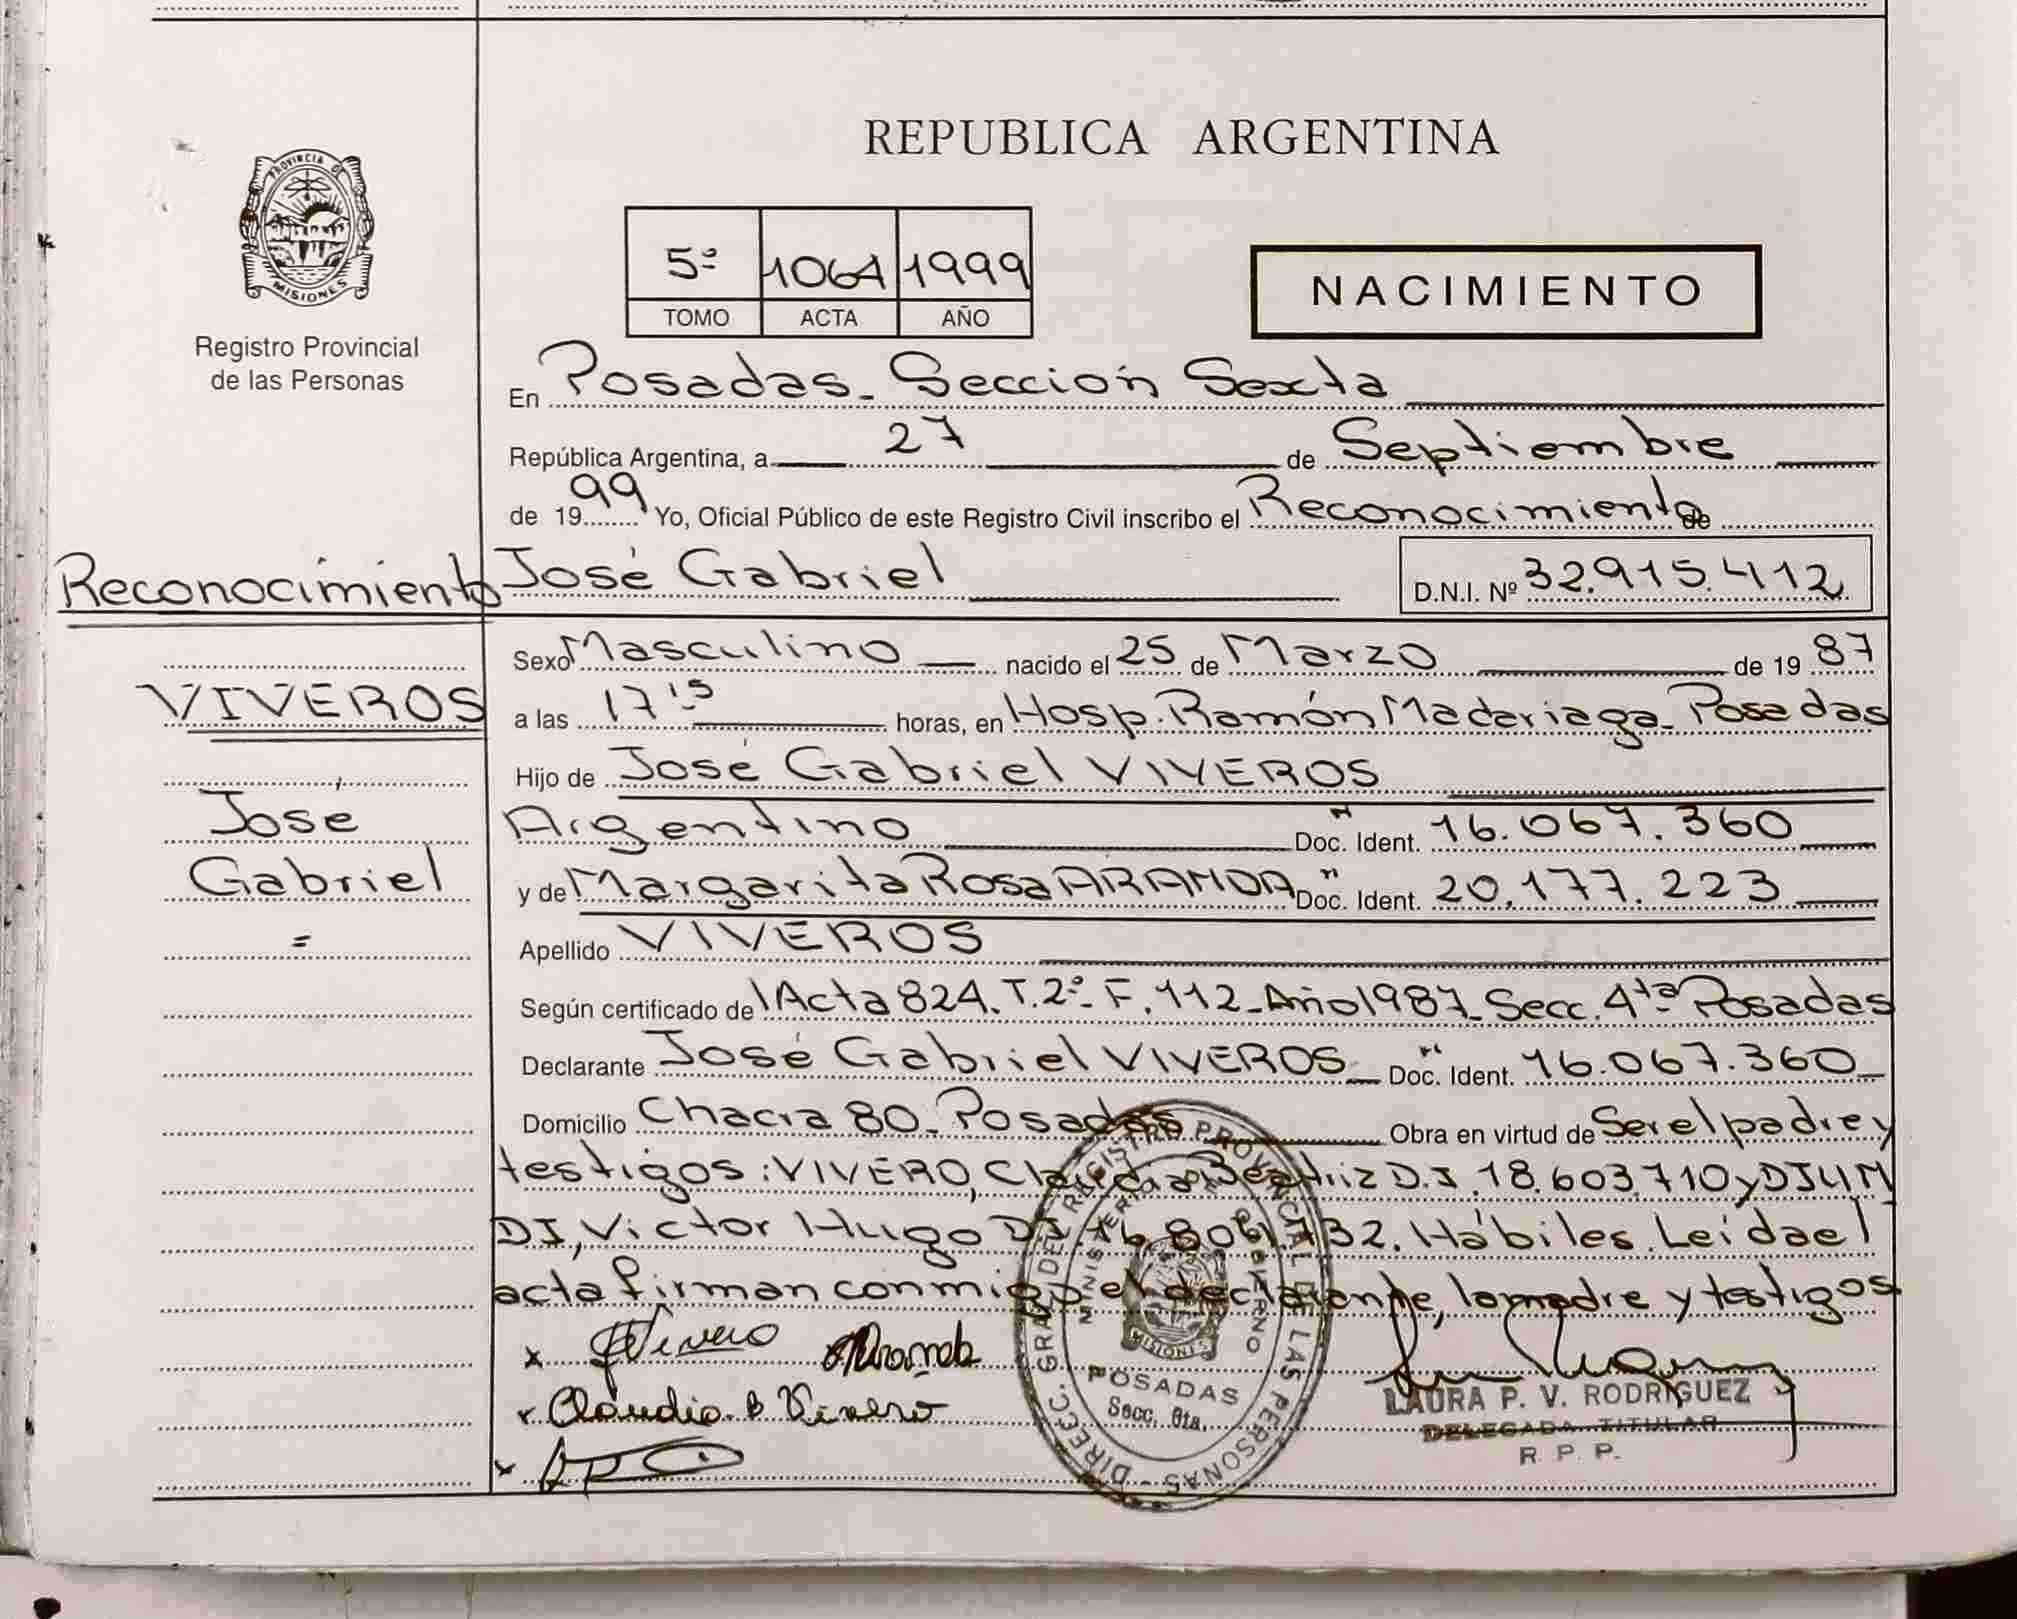 REPUBLICA ARGENTINA
PROVINCIA DE
MISIONES
Registro Provincial
de las Personas
5º 1064 1999
TOMO ACTA AÑO
NACIMIENTO
En Posadas - Sección Sexta
República Argentina, a 27 de Septiembre
de 1999 Yo, Oficial Público de este Registro Civil inscribo el Reconocimiento de
Reconocimiento
José Gabriel D.N.I. Nº 32.915.412
Sexo Masculino nacido el 25 de Marzo de 19 87
VIVEROS
a las 17 15 horas, en Hosp. Ramón Madariaga - Posadas
Hijo de José Gabriel VIVEROS
José
Argentino Doc. Ident. 16.067.360
Gabriel
y de Margarita Rosa ARANDA Doc. Ident. 20.177.223
=
Apellido VIVEROS
Según certificado de l Acta 824. T. 2º. F. 112 - Año 1987 - Secc. 4ta Posadas
Declarante José Gabriel VIVEROS - Doc. Ident. 16.067.360
Domicilio Chacra 80 - Posadas Obra en virtud de Ser el padre y
testigos: VIVERO, Claudia Beatriz D.I. 18.603.710 y
DI, Victor Hugo DI. Hábiles. Leída el
acta firman conmigo el declarante, la madre y testigos
x Vivero Aranda
x Claudia B Vivero
x
LAURA P. V. RODRIGUEZ
DELEGADA TITULAR
R. P. P.
DIRECC. GRAL. DEL REGISTRO PROVINCIAL DE LAS PERSONAS -
MINISTERIO DE GOBIERNO
MISIONES
POSADAS
Secc. 6ta.